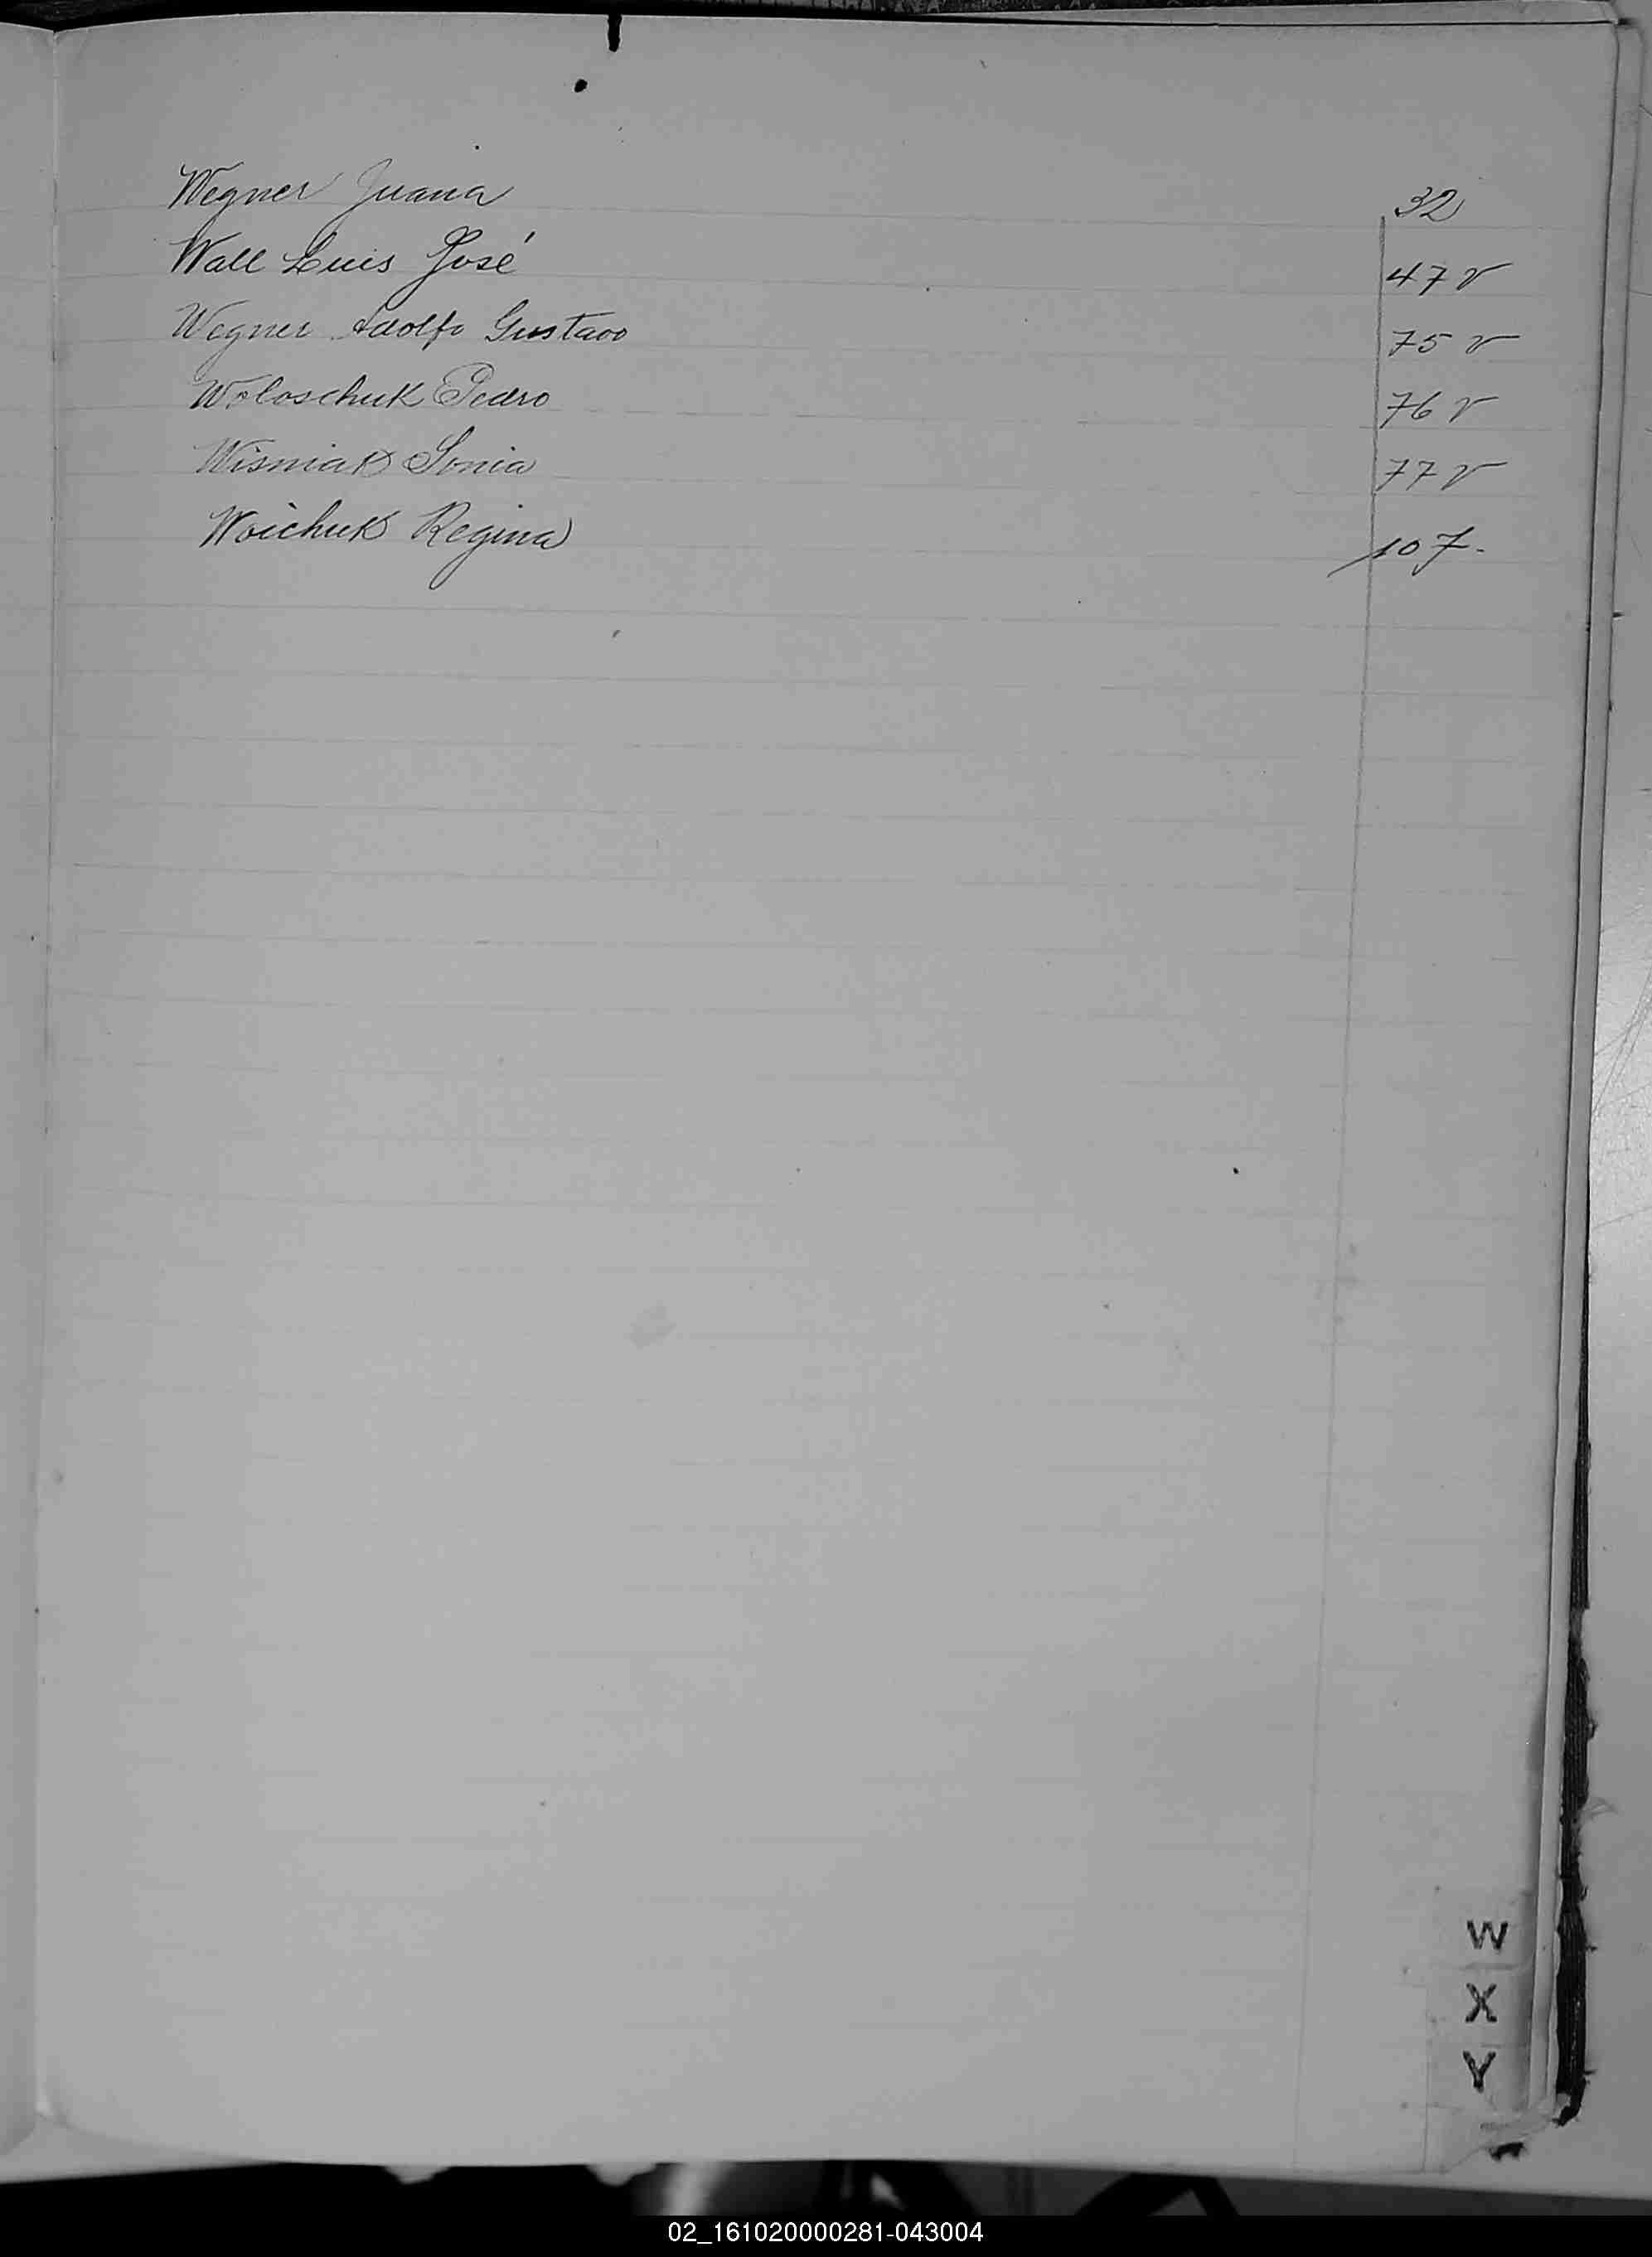 Wegner Juana 32
Wall Luis José 47 v
Wegner Adolfo Gustavo 75 v
Woloschuk Pedro 76 v
Wisniak Sonia 77 v
Woichuk Regina 107.
W
X
Y
02_161020000281-043004